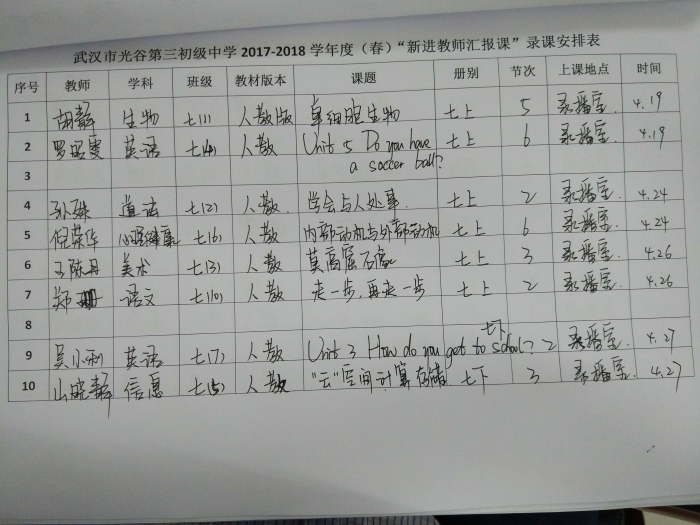 武汉市光谷第三初级中学 2017-2018 学年度（春）“新进教师汇报课”录课安排表
序号 教师 学科 班级 教材版本 课题 册别 节次 上课地点 时间
1 胡静 生物 七(1) 人教版 单细胞生物 七上 5 录播室. 4.19
2 罗 雯 英语 七(4) 人教 Unit 5 Do you have a soccer ball? 七上 6 录播室. 4.19
3
4 孙姝 道法 七(2) 人教. 学会与人处事. 七上 2 录播室. 4.24
5 倪荣华 心理健康 七(6) 人教 内部动机与外部动机 七上 6 录播室. 4.24
6 王陈丹 美术 七(3) 人教 莫高窟石窟 七上 3 录播室 4.26
7 郑 语文 七(10) 人教 走一步,再走一步 七上 2 录播室. 4.26
8
9 吴小利 英语 七(7) 人教 Unit 3 How do you get to school? 七下 2 录播室. 4.27
10 山晓静 信息 七(5) 人教 “云”空间计算存储 七下 3 录播室. 4.27